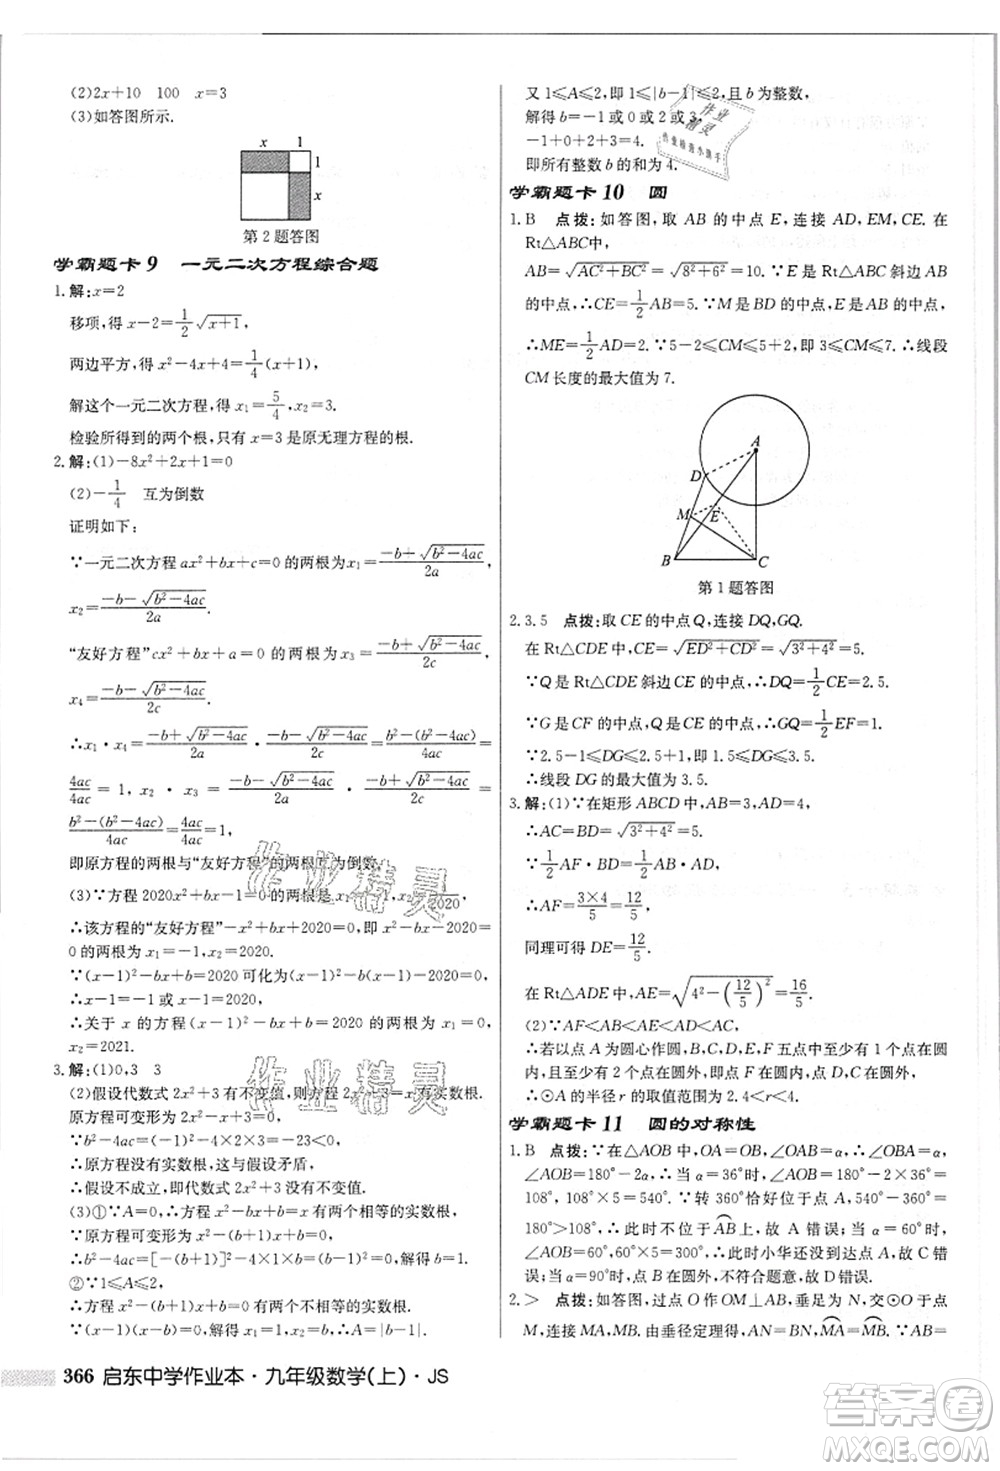 (2)2x+10　100　x=3
(3)如答图所示.
x　1
1
x
第2题答图
学霸题卡9　一元二次方程综合题
1.解:x=2
移项,得 x-2=1/2√(x+1),
两边平方,得 x²-4x+4=1/4(x+1),
解这个一元二次方程,得 x₁=5/4,x₂=3.
检验所得到的两个根,只有 x=3是原无理方程的根.
2.解:(1)-8x²+2x+1=0
(2)-1/4　互为倒数
证明如下:
∵一元二次方程 ax²+bx+c=0 的两根为 x₁=(-b+√(b²-4ac))/2a,
x₂=(-b-√(b²-4ac))/2a.
“友好方程”cx²+bx+a=0 的两根为 x₃=(-b+√(b²-4ac))/2c,
x₄=(-b-√(b²-4ac))/2c.
∴x₁·x₄=(-b+√(b²-4ac))/2a·(-b-√(b²-4ac))/2c=(b²-(b²-4ac))/4ac=
4ac/4ac=1, x₂·x₃=(-b-√(b²-4ac))/2a·(-b+√(b²-4ac))/2c=
(b²-(b²-4ac))/4ac=4ac/4ac=1,
即原方程的两根与“友好方程”的两根互为倒数.
∴该方程的“友好方程”-x²+bx+2020=0,即 x²-bx-2020
=0 的两根为 x₁=-1,x₂=2020.
∵(x-1)²-bx+b=2020 可化为(x-1)²-b(x-1)-2020=0,
∴x-1=-1 或 x-1=2020,
∴关于 x 的方程(x-1)²-bx+b=2020 的两根为 x₁=0,
x₂=2021.
3.解:(1)0,3　3
(2)假设代数式 2x²+3 有不变值,则方程 2x²+3=x 有解.
原方程可变形为 2x²-x+3=0.
∵b²-4ac=(-1)²-4×2×3=-23<0,
∴该方程无解,
∴假设不成立,即代数式 2x²+3 没有不变值.
(3)①∵A=0,∴方程 x²-bx=x 有两个相等的实数根.
原方程可变形为 x²-(b+1)x=0,
∴b²-4ac=[-(b+1)]²-4×1×0=0,解得 b=-1.
②∵1⩽A⩽2,
∴方程 x²-(b+1)x=0 有两个不相等的实数根.
∵x(x-b-1)=0,解得 x₁=0,x₂=b+1,∴A=|b+1|.
又 1⩽A⩽2,即 1⩽|b-1|⩽2,且 b 为整数,
解得 b=-1 或 0 或 2 或 3,
-1+0+2+3=4.
即所有整数 b 的和为 4.
学霸题卡10　圆
1.B　点拨:如答图,取 AB 的中点 E,连接 AD,EM,CE. 在
Rt△ABC中,
AB=√(AC²+BC²)=√(8²+6²)=10. ∵E 是 Rt△ABC 斜边
AB的中点,∴CE=1/2AB=5. ∵M 是 BD 的中点,E 是 AB 的中点,
∴ME=1/2AD=2. ∵5-2⩽CM⩽5+2,即 3⩽CM⩽7. ∴线段
CM 长度的最大值为 7.
A
D
M
E
B
C
第1题答图
2.3.5　点拨:取 CE 的中点 Q,连接 DQ,GQ.
在 Rt△CDE 中,CE=√(ED²+CD²)=√(3²+4²)=5.
∵Q 是 Rt△CDE 斜边 CE 的中点,∴DQ=1/2CE=2.5.
∵G 是 CF 的中点,Q 是 CE 的中点,∴GQ=1/2EF=1.
∵2.5-1⩽DG⩽2.5+1,即 1.5⩽DG⩽3.5,
∴线段 DG 的最大值为 3.5.
3.解:(1)∵在矩形 ABCD 中,AB=3,AD=4,
∴AC=BD=√(3²+4²)=5.
∵1/2AF·BD=1/2AB·AD,
∴AF=(3×4)/5=12/5,
同理可得 DE=12/5.
在 Rt△ADE 中,AE=√(4²-(12/5)²)=16/5.
(2)∵AF<AB<AE<AD<AC,
∴若以点 A 为圆心作圆,B,C,D,E,F 五点中至少有 1 个点在圆
内,且至少有 2 个点在圆外,
∴⊙A 的半径 r 的取值范围为 2.4<r<4.
学霸题卡11　圆的对称性
1.B　点拨:∵在△AOB 中,OA=OB,∠OAB=α,∴∠OBA=α,
∠AOB=180°-2α. ∴当 α=36°时,∠AOB=180°-2×36°=
108°,108°×5=540°. ∵转 360°恰好经过一周,540°-360°=
180°>108°,∴此时不位于AB上,故 A 错误;当 α=60°时,
2.>　点拨:如答图,过点 O 作 OM⊥AB,垂足为 N,交⊙O 于点
M,连接MA,MB. 由垂径定理,得AN=NB,MA=MB. ∵AB=
366 启东中学作业本·九年级数学(上)·JS
作业精灵
作业精灵
作业精灵
答案圈
MXQE.COM